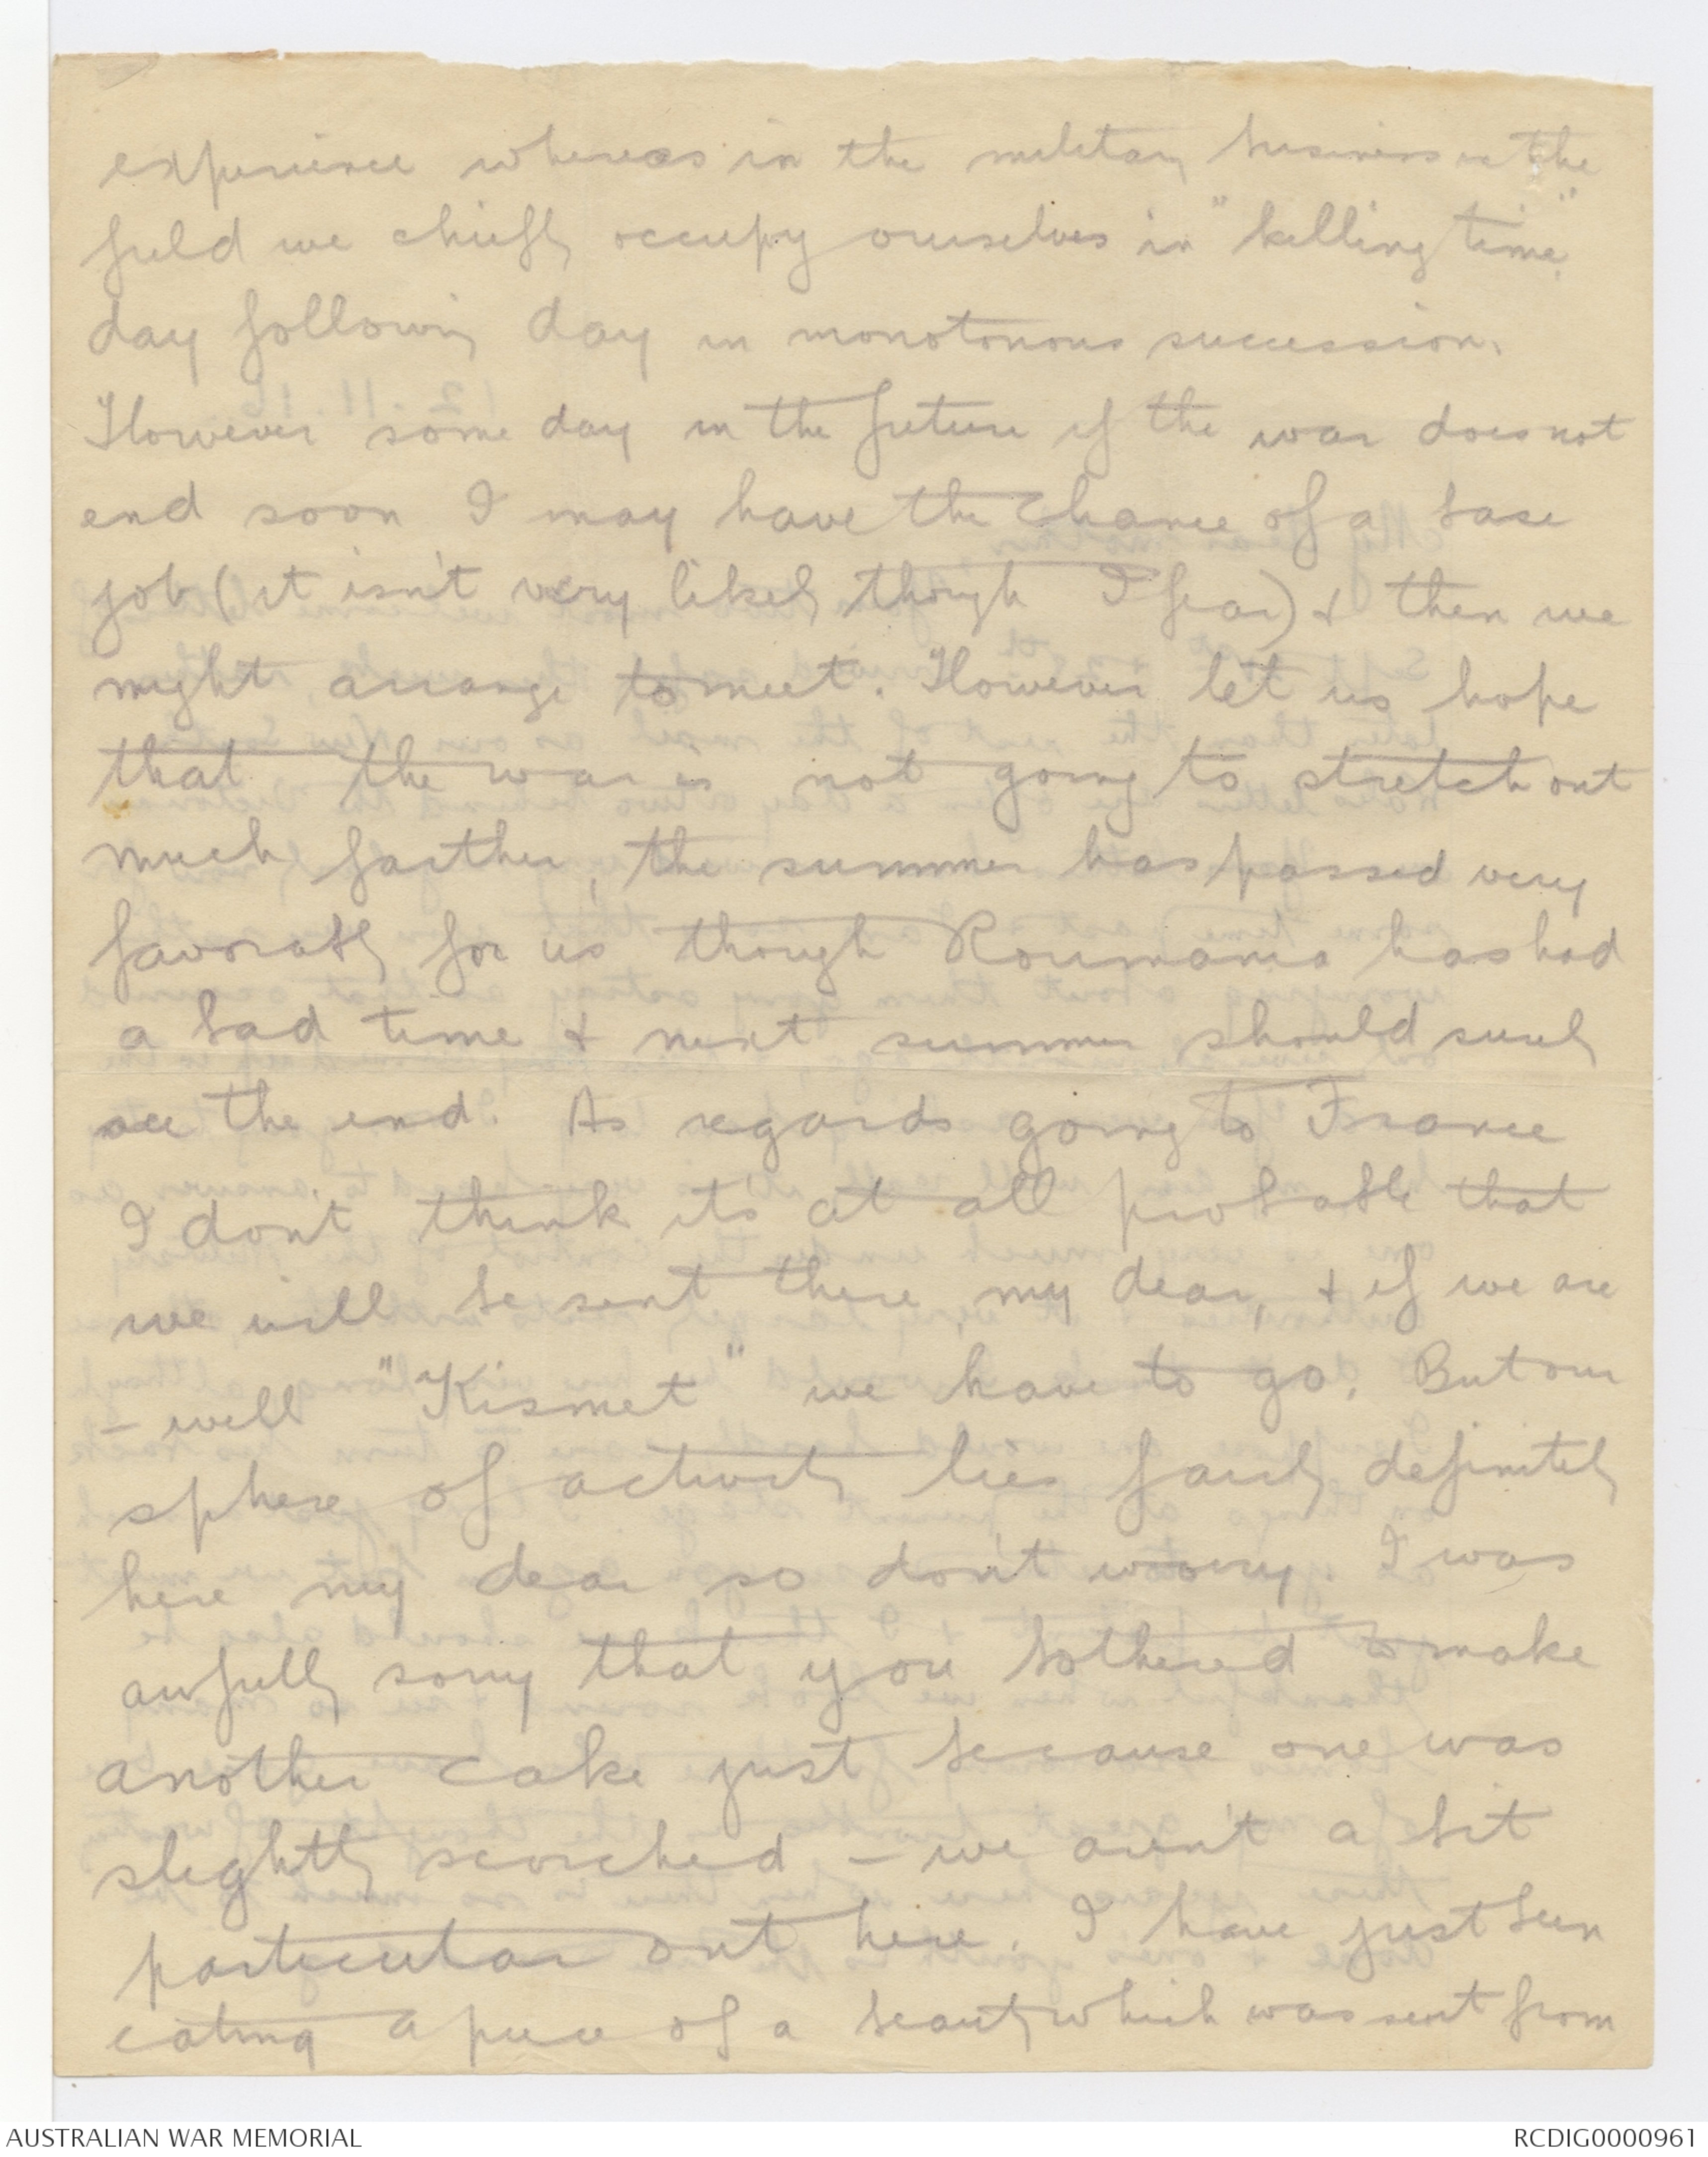 experience whereas in the military business in the
field we chiefly occupy ourselves in "killing time"
day following day in monotonous succession.
However some day in the future if the war does not
end soon I may have the chance of a base
job (it isn't very likely though I fear) & then we
might arrange to meet. However let us hope
that the war is not going to stretch out
much farther, the summer has passed very
favorably for us though Roumania has had
a bad time & next summer should surely
see the end. As regards going to France
I don't think its at all probable that
we will be sent there, my dear, & if we are
- well "Kismet" we have to go. But our
sphere of activity lies fairly definitely
here my dear so don't worry. I was
awfully sorry that you bothered to make
another cake just because one was
slightly scorched - we aren't a bit
particular out here. I have just been
eating a piece of a beauty which was sent from
AUSTRALIAN WAR MEMORIAL
RCDIG0000961